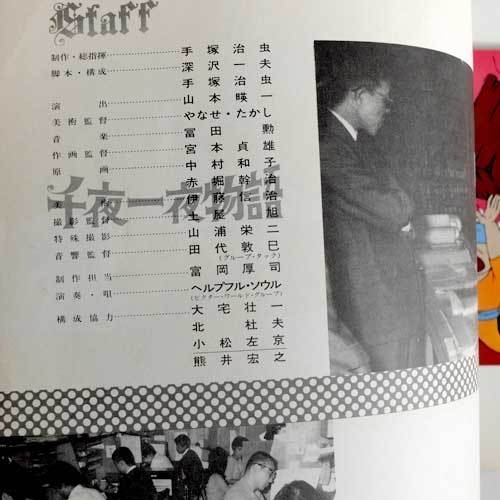 Staff
制作・総指揮 手塚治虫
脚本・構成 深沢一夫
手塚治虫
演出 山本暎一
美術監督 やなせ・たかし
音楽 冨田勲
作画監督 宮本貞雄
原画 中村和子
赤堀幹治
千夜一夜物語
美術 伊藤信治
撮影監督 土屋旭
特殊撮影 山浦栄二
音響監督 田代敦巳
(グループ・タック)
制作担当 富岡厚司
演奏・唄 ヘルプフル・ソウル
(ビクター・ワールド・グループ)
構成協力 大宅壮一
北杜夫
小松左京
熊井宏之